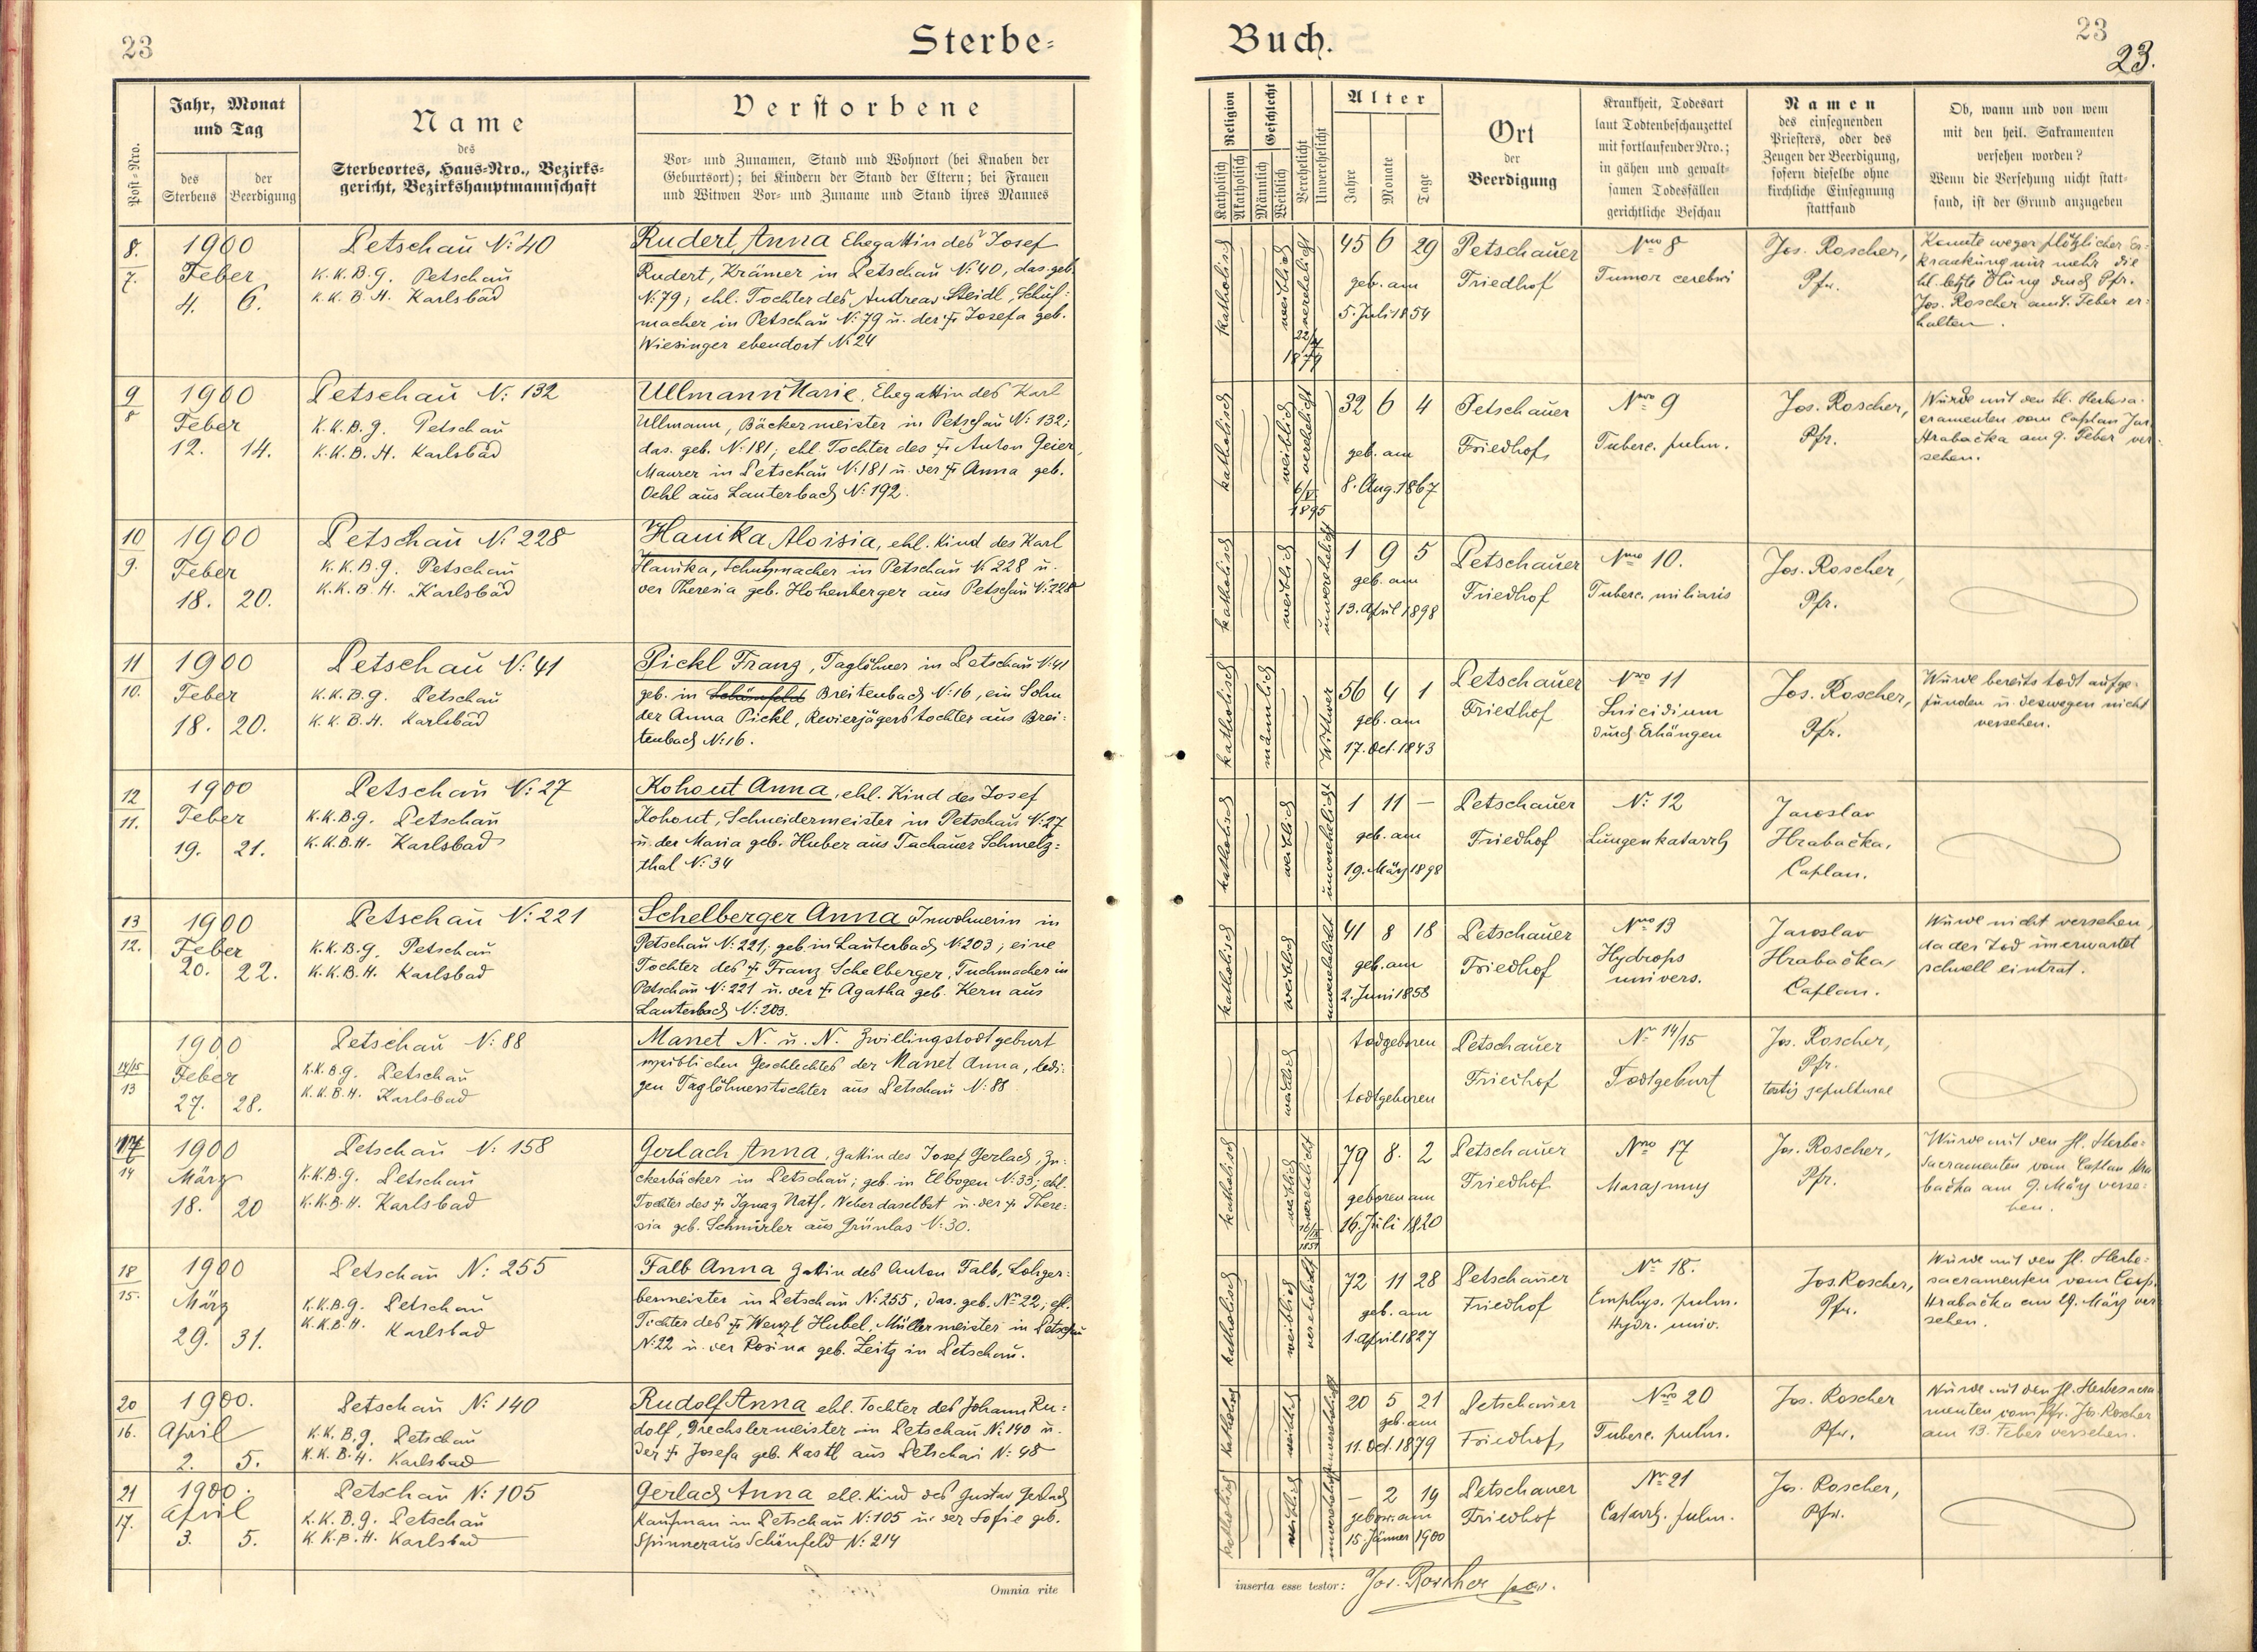 23
Sterbe-
Post-Nro.
Jahr, Monat
und Tag
des
Sterbens
der
Beerdigung
Name
des
Sterbeortes, Haus-Nro., Bezirks-
gericht, Bezirkshauptmannschaft
Verstorbene
Vor- und Zunamen, Stand und Wohnort (bei Knaben der
Geburtsort); bei Kindern der Stand der Eltern; bei Frauen
und Witwen Vor- und Zuname und Stand ihres Mannes
8.
7.
1900
Feber
4. 6.
Petschau N: 40
K.K.B.G. Petschau
K.K.B.H. Karlsbad
Rudert Anna Ehegattin des Josef
Rudert, Krämer in Petschau N: 40, das. geb.
N: 79; ehl. Tochter des Andreas Steidl, Schuh-
macher in Petschau N: 79 u. der † Josefa geb.
Wiesinger ebendort N: 24
9
8
1900
Feber
12. 14.
Petschau N: 132
K.K.B.G. Petschau
K.K.B.H. Karlsbad
Ullmann Marie, Ehegattin des Karl
Ullmann, Bäckermeister in Petschau N: 132;
das. geb. N: 181; ehl. Tochter des † Anton Geier,
Maurer in Petschau N: 181 u. der † Anna geb.
Oehl aus Lauterbach N: 192.
10
9.
1900
Feber
18. 20.
Petschau N: 228
K.K.B.G. Petschau
K.K.B.H. Karlsbad
Hanika Aloisia, ehl. Kind des Karl
Hanika, Schuhmacher in Petschau N: 228 u.
der Theresia geb. Hohenberger aus Petschau N: 228
11
10.
1900
Feber
18. 20.
Petschau N: 41
K.K.B.G. Petschau
K.K.B.H. Karlsbad
Pickl Franz, Taglöhner in Petschau N: 41
geb. in Schönfeld Breitenbach N: 16, ein Sohn
der Anna Pickl, Revierjägerstochter aus Brei-
tenbach N: 16.
12
11.
1900
Feber
19. 21.
Petschau N: 27
K.K.B.G. Petschau
K.K.B.H. Karlsbad
Kohout Anna, ehl. Kind des Josef
Kohout, Schneidermeister in Petschau N: 27
u. der Maria geb. Huber aus Tachauer Schmelz-
thal N: 34
13
12.
1900
Feber
20. 22.
Petschau N: 221
K.K.B.G. Petschau
K.K.B.H. Karlsbad
Schelberger Anna Inwohnerin in
Petschau N: 221; geb. in Lauterbach N: 203; eine
Tochter des † Franz Schelberger, Tuchmacher in
Petschau N: 221 u. der † Agatha geb. Kern aus
Lauterbach N: 203.
14/15
13
1900
Feber
27. 28.
Petschau N: 88
K.K.B.G. Petschau
K.K.B.H. Karlsbad
Manet N. u. N. Zwillingstodtgeburt
weiblichen Geschlechtes der Manet Anna, ledi-
gen Taglöhnerstochter aus Petschau N: 88
17
14
1900
März
18. 20
Petschau N: 158
K.K.B.G. Petschau
K.K.B.H. Karlsbad
Gerlach Anna, Gattin des Josef Gerlach, Zu-
ckerbäcker in Petschau; geb. in Elbogen N: 33; ehl.
Tochter des † Ignaz Nath, Weber daselbst u. der † There-
sia geb. Schnürler aus Grünlas N: 30.
18
15.
1900
März
29. 31.
Petschau N: 255
K.K.B.G. Petschau
K.K.B.H. Karlsbad
Falb Anna Gattin des Anton Falb, Lohger-
bermeister in Petschau N: 255; das. geb. Nr 22; ehl.
Tochter des † Wenzl Hubel, Müllermeister in Petschau
N: 22 u. der Rosina geb. Zeitz in Petschau.
20
16.
1900.
April
2. 5.
Petschau N: 140
K.K.B.G. Petschau
K.K.B.H. Karlsbad
Rudolf Anna ehl. Tochter des Johann Ru-
dolf, Drechslermeister in Petschau N: 140 u.
der † Josefa geb. Kastl aus Petschau N: 48
21
17.
1900.
April
3. 5.
Petschau N: 105
K.K.B.G. Petschau
K.K.B.H. Karlsbad
Gerlach Anna ehl. Kind des Gustav Gerlach
Kaufman in Petschau N: 105 u. der Sofie geb.
Spinner aus Schönfeld N: 214
Omnia rite
Buch.
23
23.
Religion
Katholisch
Akatholisch
Geschlecht
Männlich
Weiblich
Verehelicht
Unverehelicht
Alter
Jahre
Monate
Tage
Ort
der
Beerdigung
Krankheit, Todesart
laut Todtenbeschauzettel
mit fortlaufender Nro.;
in gähen und gewalt-
samen Todesfällen
gerichtliche Beschau
Namen
des einsegnenden
Priesters, oder des
Zeugen der Beerdigung,
sofern dieselbe ohne
kirchliche Einsegnung
stattfand
Ob, wann und von wem
mit den heil. Sakramenten
versehen worden?
Wenn die Versehung nicht statt-
fand, ist der Grund anzugeben
katholisch
weiblich
verehelicht
1879
45 6 29
geb. am
5. Juli 1854
Petschauer
Friedhof
Nro 8
Tumor cerebri
Jos. Roscher,
Pfr.
Konnte wegen plötzlicher Er-
krankung nur mehr die
hl. letzte Ölung durch Pfr.
Jos. Roscher am 4. Feber er-
halten.
katholisch
weiblich
verehelicht
6/V
1895
32 6 4
geb. am
8. Aug. 1867
Petschauer
Friedhof
Nro 9
Tuberc. pulm.
Jos. Roscher,
Pfr.
Wurde mit den hl. Sterbesa-
cramenten vom Caplan Jar.
Hrabačka am 9. Feber ver-
sehen.
katholisch
weiblich
unverehelicht
1 9 5
geb. am
13. April 1898
Petschauer
Friedhof
Nro 10.
Tuberc. miliaris
Jos. Roscher,
Pfr.
katholisch
männlich
Wittwer
56 4 1
geb. am
17. Oct. 1843
Petschauer
Friedhof
Nro 11
Suicidium
durch Erhängen
Jos. Roscher,
Pfr.
Wurde bereits todt aufge-
funden u. deswegen nicht
versehen.
katholisch
weiblich
unverehelicht
1 11 –
geb. am
19. März 1898
Petschauer
Friedhof
N: 12
Lungenkatarrh
Jaroslav
Hrabačka,
Caplan.
katholisch
weiblich
unverehelicht
41 8 18
geb. am
2. Juni 1858
Petschauer
Friedhof
Nro 13
Hydrops
univers.
Jaroslav
Hrabačka,
Caplan.
Wurde nicht versehen,
da der Tod unerwartet
schnell eintrat.
weiblich
todgeboren
todtgeboren
Petschauer
Friedhof
Nr 14/15
Todtgeburt
Jos. Roscher,
Pfr.
testis sepulturae
katholisch
weiblich
verehelicht
1851
79 8. 2
geboren am
16. Juli 1820
Petschauer
Friedhof
Nro 17
Marasmus
Jos. Roscher,
Pfr.
Wurde mit den hl. Sterbe-
sacramenten vom Caplan Hra-
bačka am 9. März verse-
hen.
katholisch
weiblich
verehelicht
72 11 28
geb. am
1. April 1827
Petschauer
Friedhof
Nr 18.
Emphys. pulm.
Hydr. univ.
Jos. Roscher,
Pfr.
Wurde mit den hl. Sterbe-
sacramenten vom Capl.
Hrabačka am 29. März ver-
sehen.
katholisch
weiblich
unverehelicht
20 5 21
geb. am
11. Oct. 1879
Petschauer
Friedhof
Nro 20
Tuberc. pulm.
Jos. Roscher
Pfr.
Wurde mit den hl. Sterbesacra-
menten vom Pfr. Jos. Roscher
am 13. Feber versehen.
katholisch
weiblich
unverehelicht
– 2 19
gebor. am
15. Jänner 1900
Petschauer
Friedhof
Nr 21
Catarrh. pulm.
Jos. Roscher,
Pfr.
inserta esse testor: Jos. Roscher